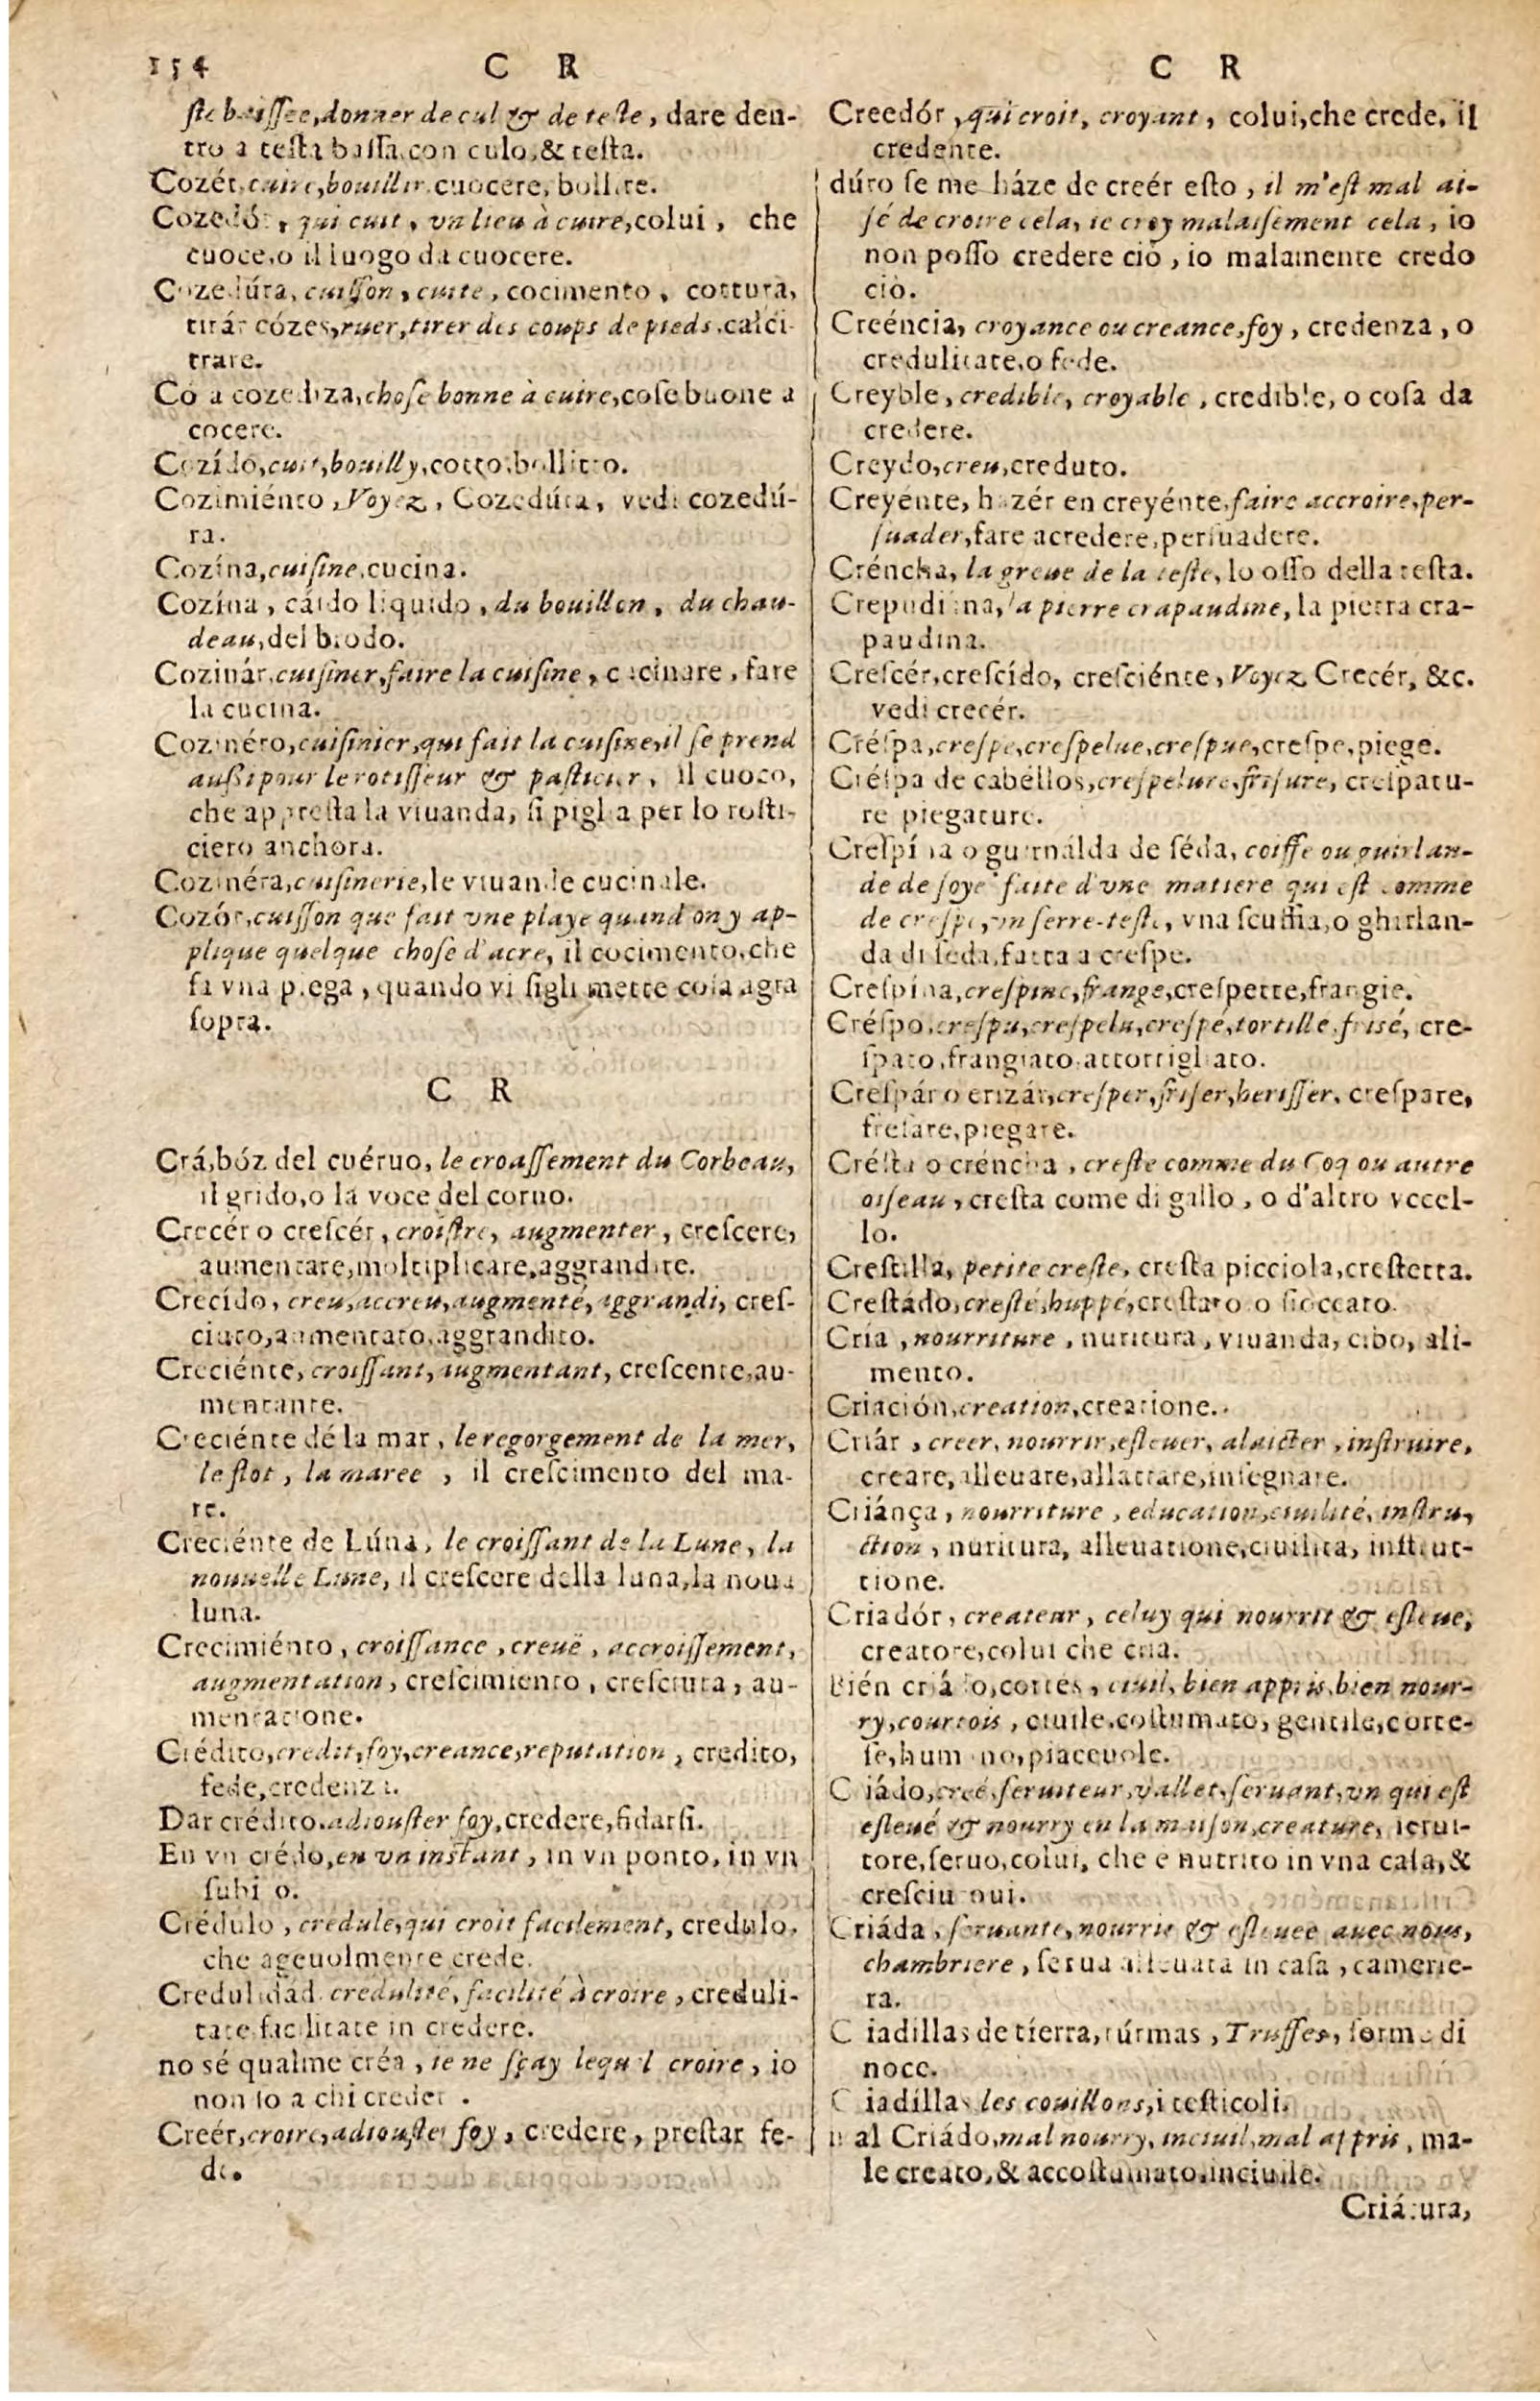 154 C R C R
ste baissee, donner de cul & de teste, dare den-
tro a testa bassa, con culo, & testa.
Cozér, cuire, bouillir, cuocere, bollire.
Cozedór, qui cuit, vn lieu à cuire, colui, che
cuoce, o il luogo da cuocere.
Cozedúra, cuisson, cuite, cocimento, cottura,
tirár cózes, ruer, tirer des coups de pieds, calci-
trare.
Cosa cozediza, chose bonne à cuire, cose buone a
cocere.
Cozído, cuit, bouilly, cotto, bollito.
Cozimiénto, Voyez, Cozedúra, vedi cozedú-
ra.
Cozína, cuisine, cucina.
Cozína, cáldo liquido, du bouillon, du chau-
deau, del brodo.
Cozinár, cuisiner, faire la cuisine, cucinare, fare
la cucina.
Cozinéro, cuisinier, qui fait la cuisine, il se prend
aussi pour le rotisseur & pasticier, il cuoco,
che appresta la viuanda, si piglia per lo rosti-
ciero anchora.
Cozinéra, cuisinerie, le viuande cucinale.
Cozór, cuisson que fait vne playe quand on y ap-
plique quelque chose d'acre, il cocimento, che
fa vna piega, quando vi sigli mette cosa agra
sopra.
C R
Crá, bóz del cuéruo, le croassement du Corbeau,
il grido, o la voce del coruo.
Crecér o crescér, croistre, augmenter, crescere,
aumentare, moltiplicare, aggrandire.
Crecído, creu, accreu, augmenté, aggrandi, cres-
ciuto, aumentato, aggrandito.
Creciénte, croissant, augmentant, crescente, au-
mentante.
Creciénte dé la mar, le regorgement de la mer,
le flot, la maree, il crescimento del ma-
re.
Creciénte de Lúna, le croissant de la Lune, la
nouuelle Lune, il crescere della luna, la noua
luna.
Crecimiénto, croissance, creuë, accroissement,
augmentation, crescimiento, cresctura, au-
mentatione.
Crédito, credit, foy, creance, reputation, credito,
fede, credenza.
Dar crédito, adiouster foy, credere, fidarsi.
En vn crédo, en vn instant, in vn ponto, in vn
subito.
Crédulo, credule, qui croit facilement, credulo,
che ageuolmente crede.
Credulidád, credulité, facilité à croire, creduli-
tate, facilitate in credere.
no sé qualme créa, ie ne sçay lequel croire, io
non so a chi creder.
Creér, croire, adiouster foy, credere, prestar fe-
de.
Creedór, qui croit, croyant, colui, che crede, il
credente.
dúro se me háze de creér esto, il m'est mal ai-
sé de croire cela, ie croy malaisement cela, io
non posso credere ciò, io malamente credo
ciò.
Creéncia, croyance ou creance, foy, credenza, o
credulitate, o fede.
Creyble, credible, croyable, credible, o cosa da
credere.
Creydo, creu, creduto.
Creyénte, hazér en creyénte, faire accroire, per-
suader, fare acredere, persuadere.
Créncha, la greue de la teste, lo osso della testa.
Crepudina, la pierre crapaudine, la pietra cra-
paudina.
Crescér, crescído, cresciénte, Voyez Crecér, &c.
vedi crecér.
Créspa, crespe, crespelue, crespue, crespe, piege.
Créspa de cabéllos, crespelure, frisure, crespatu-
re piegature.
Crespína o guirnálda de séda, coiffe ou guirlan-
de de soye faite d'vne matiere qui est comme
de crespe, vn serre-teste, vna scuffia, o ghirlan-
da di seda, fatta a crespe.
Crespína, crespine, frange, crespette, frangie.
Créspo, crespu, crespelu, crespé, tortille, frisé, cre-
spato, frangiato, attortigliato.
Crespár o erizár, cresper, friser, herisser, crespare,
fresare, piegare.
Crésta o créncha, creste comme du Coq ou autre
oiseau, cresta come di gallo, o d'altro vccel-
lo.
Crestilla, petite creste, cresta picciola, crestetta.
Crestádo, cresté, huppé, crestato o fioccato.
Cría, nourriture, nuritura, viuanda, cibo, ali-
mento.
Criación, creation, creatione.
Criár, creer, nourrir, esleuer, alaicter, instruire,
creare, alleuare, allattare, insegnare.
Criánça, nourriture, education, ciuilité, instru-
ction, nuritura, alleuatione, ciuilita, instrut-
tione.
Criadór, createur, celuy qui nourrit & esleue,
creatore, colui che cria.
Bién criádo, cortés, ciuil, bien appris, bien nour-
ry, courtois, ciuile, costumato, gentile, corte-
se, humano, piaceuole.
Criádo, creé, seruiteur, vallet, seruant, vn qui est
esleué & nourry en la maison, creature, serui-
tore, seruo, colui, che e nutrito in vna casa, &
cresciuto iui.
Criáda, seruante, nourrie & esleuee auec nous,
chambriere, serua alleuata in casa, camerie-
ra.
Criadillas de tierra, túrmas, Truffes, forme di
noce.
Criadíllas les couillons, i testicoli.
mal Criádo, mal nourry, inciuil, mal appris, ma-
le creato, & accostumato, inciuile.
Criátura,